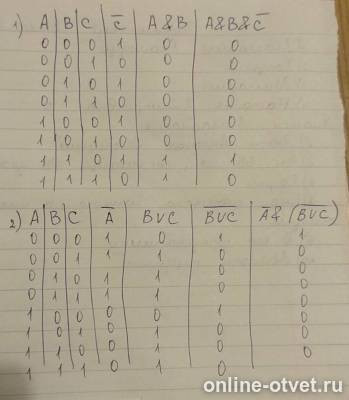 1) A B C C̅ A & B A&B&C̅
0 0 0 1 0 0
0 0 1 0 0 0
0 1 0 1 0 0
0 1 1 0 0 0
1 0 0 1 0 0
1 0 1 0 0 0
1 1 0 1 1 1
1 1 1 0 1 0
2) A B C A̅ B∨C B̅∨̅C̅ A̅ & (B̅∨̅C̅)
0 0 0 1 0 1 1
0 0 1 1 1 0 0
0 1 0 1 1 0 0
0 1 1 1 1 0 0
1 0 0 0 0 1 0
1 0 1 0 1 0 0
1 1 0 0 1 0 0
1 1 1 0 1 0
online-otvet.ru